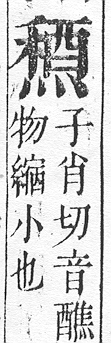 子肖切音醮
物縮小也